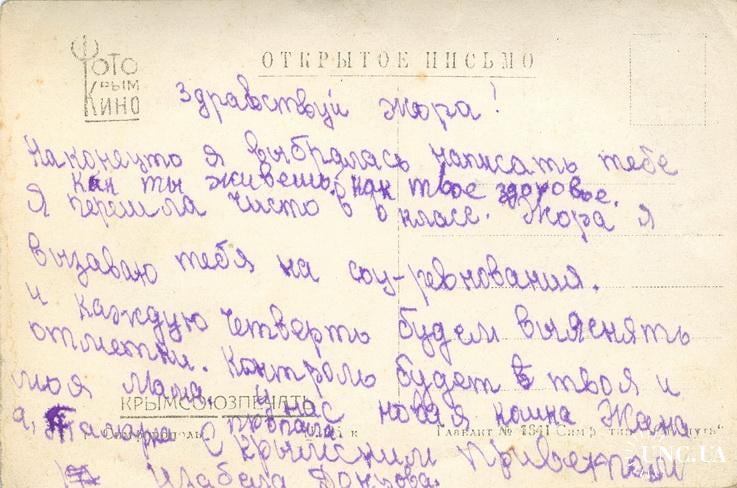 Фото
Крым
Кино
ОТКРЫТОЕ ПИСЬМО
Здравствуй жора!
Наконецто я выбралась написать тебе
Как ты живешь, как твое здоровье.
Я перешла чисто в 6 класс. Жора я
вызаваю тебя на соц-ревнования.
и каждую четверть будем выяснять
отметки. Контроль будет твоя и
моя мама. У нас новая кошка Жана
КРЫМСОЮЗПЕЧАТЬ
а, пропала
Главлит №
С крымским приветом
UNC.UA